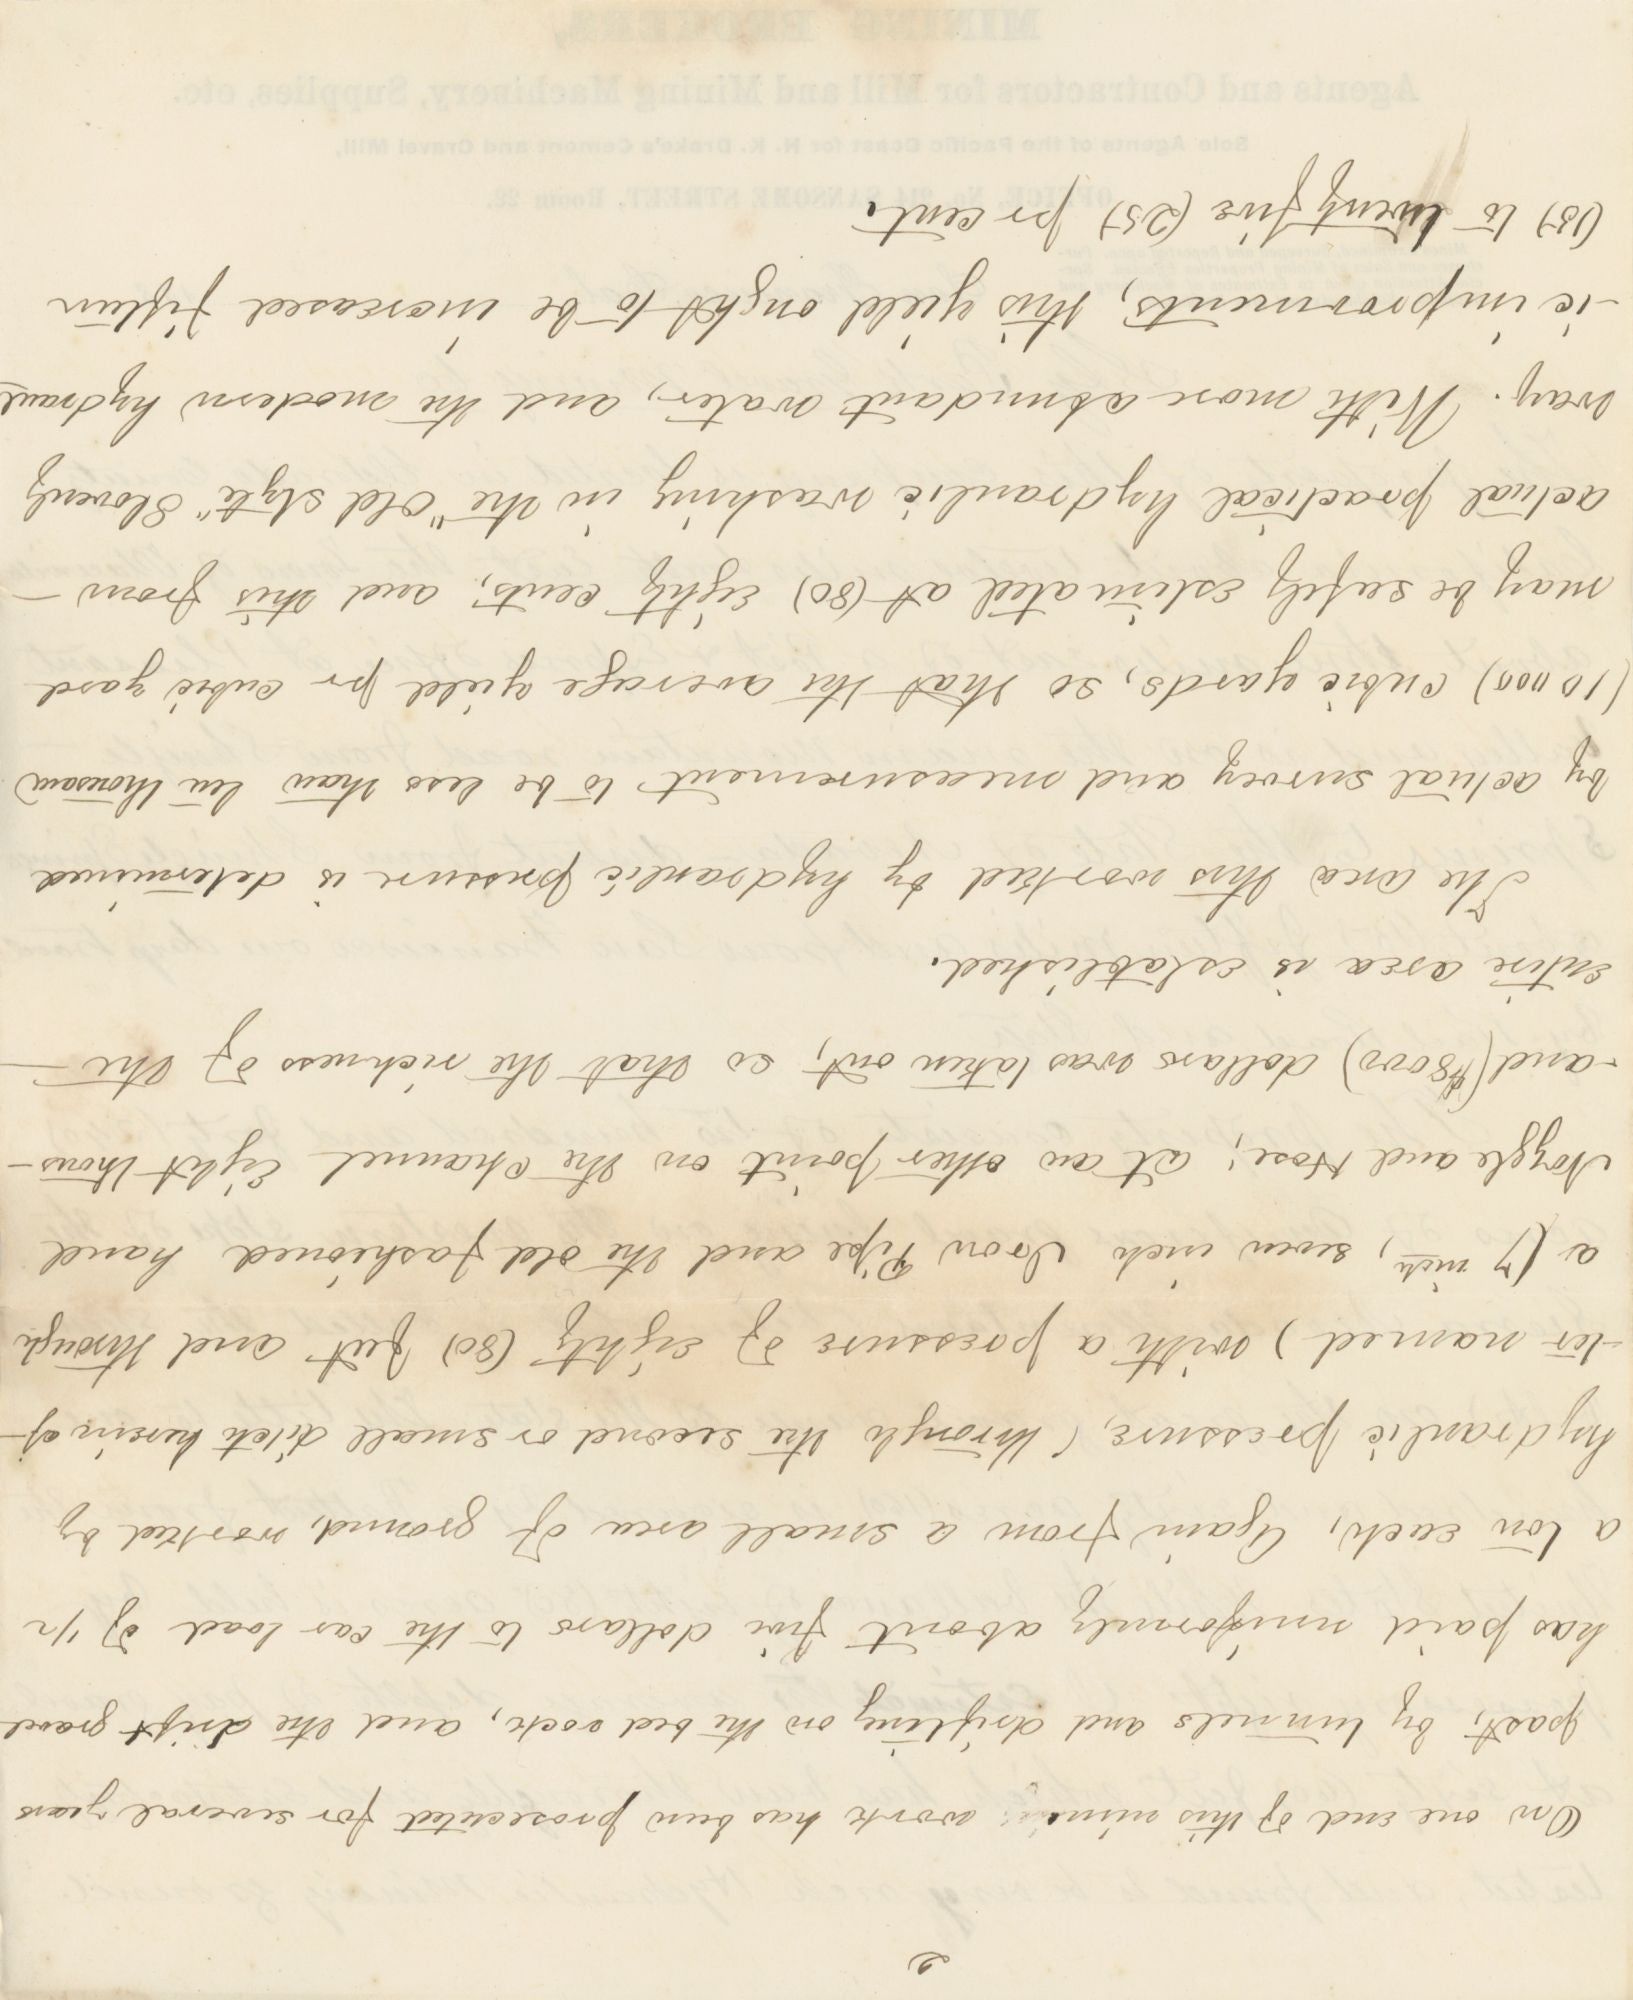 2
On one end of this mine work has been prosecuted for several years
past, by tunnels and drifting on the bed rock, and the drift gravel
has paid uniformly about five dollars to the car load of 1/2
a ton each, Again from a small area of ground, worked by
hydraulic pressure, (through the second or small ditch herein af-
-ter named) with a pressure of eighty (80) feet and through
a (7 inch, seven inch Iron Pipe and the old fashioned hand
Nozzle and Hose; at an other point on the channel Eight thous-
-and ($8000) dollars was taken out, so that the richness of the —
entire area is established.
The area this worked by hydraulic pressure is determined
by actual survey and measurement to be less than ten thousand
(10 000) cubic yards, so that the average yield pr cubic yard
may be safely estimated at (80) eighty cents, and this from —
actual practical hydraulic washing in the "old style" slovenly
way. With more abundant water, and the modern hydraul
-ic improvments, this yield ought to be increased fifteen
(15) to twenty five (25) pr cent.
MINING BUREAU,
Agents and Contractors for Mill and Mining Machinery, Supplies, etc.
Sole Agents of the Pacific Coast for H. K. Drake's Cement and Gravel Mill,
OFFICE, No. 214 SANSOME STREET, Room 22.